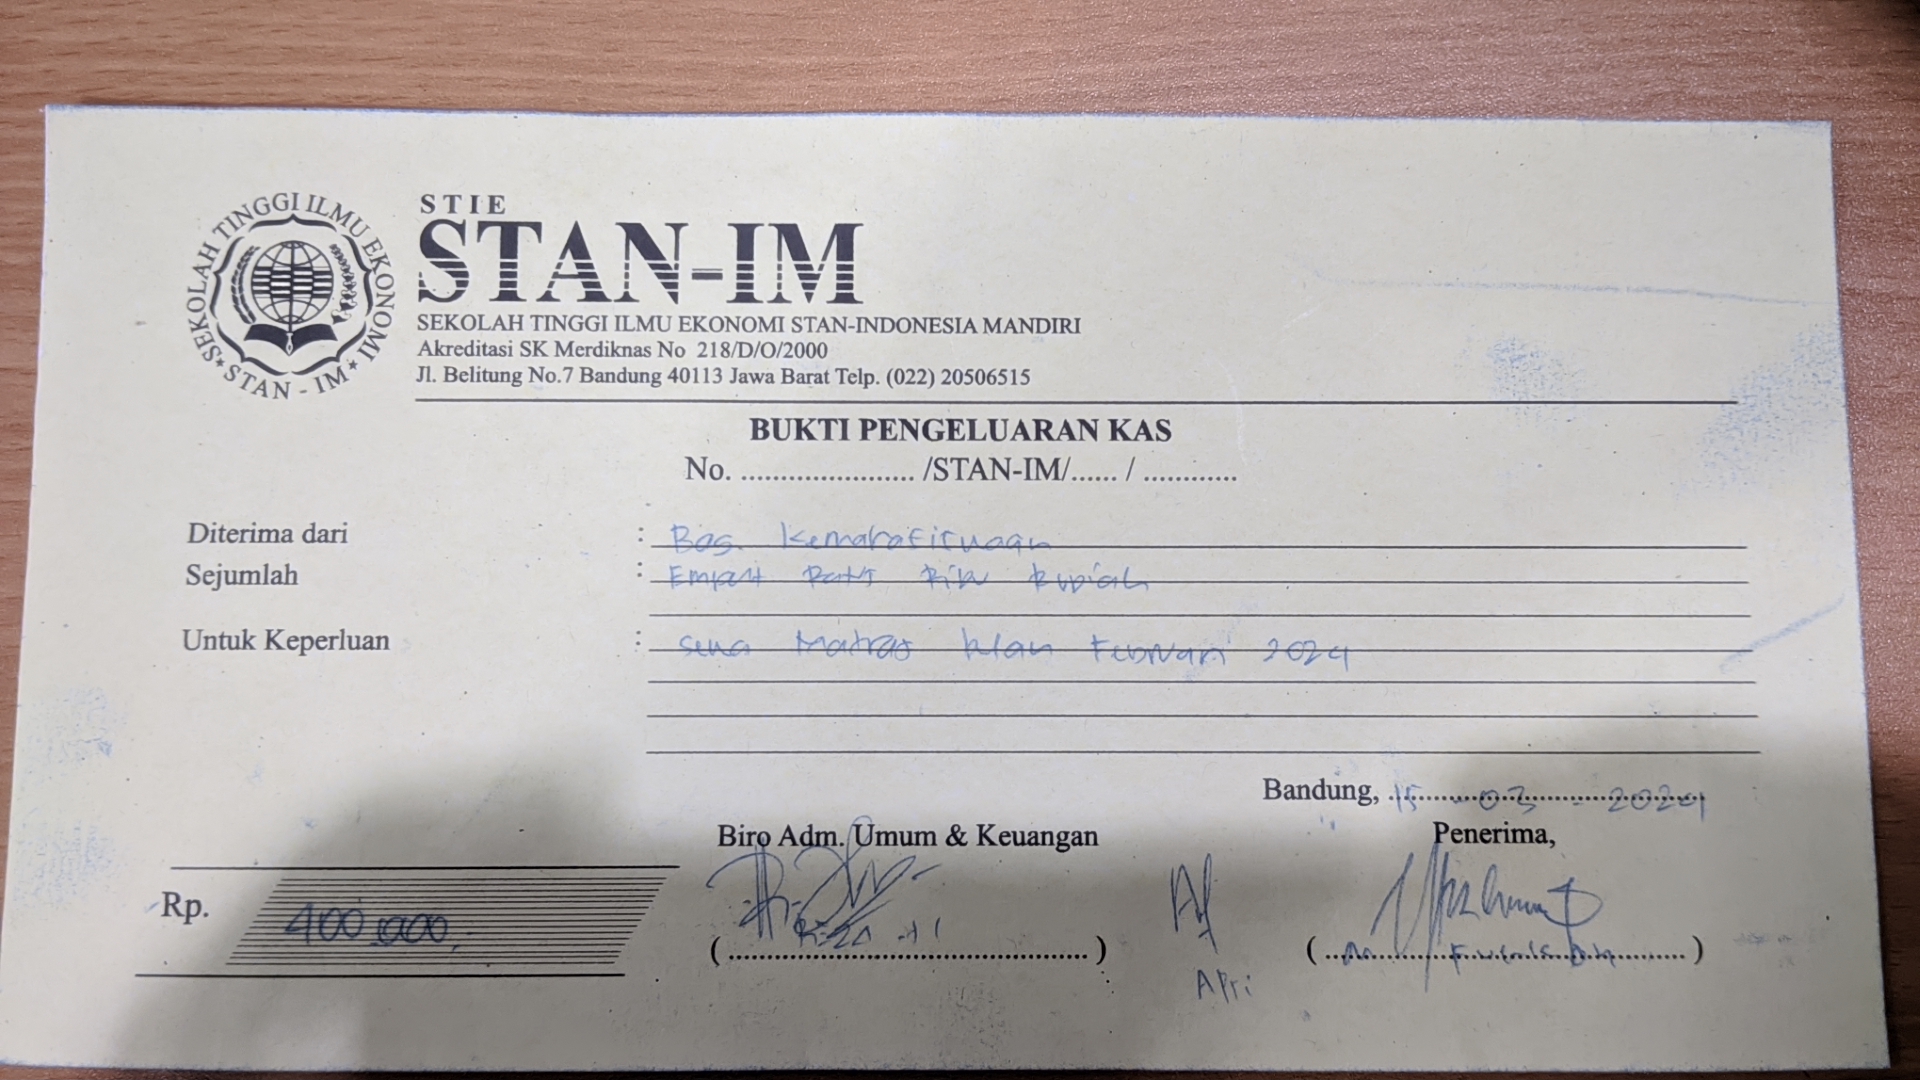 SEKOLAH TINGGI ILMU EKONOMI
STAN - IM
STIE
STAN-IM
SEKOLAH TINGGI ILMU EKONOMI STAN-INDONESIA MANDIRI
Akreditasi SK Merdiknas No 218/D/O/2000
Jl. Belitung No.7 Bandung 40113 Jawa Barat Telp. (022) 20506515
BUKTI PENGELUARAN KAS
No. ...................... /STAN-IM/...... / ............
Diterima dari : Bag. Kemahasiswaan
Sejumlah : Empat Ratus Ribu Rupiah
Untuk Keperluan : Sewa Matras bulan Februari 2024
Bandung, 15 - 03 - 2024
Biro Adm. Umum & Keuangan
Penerima,
Rp. 400.000,
Apri